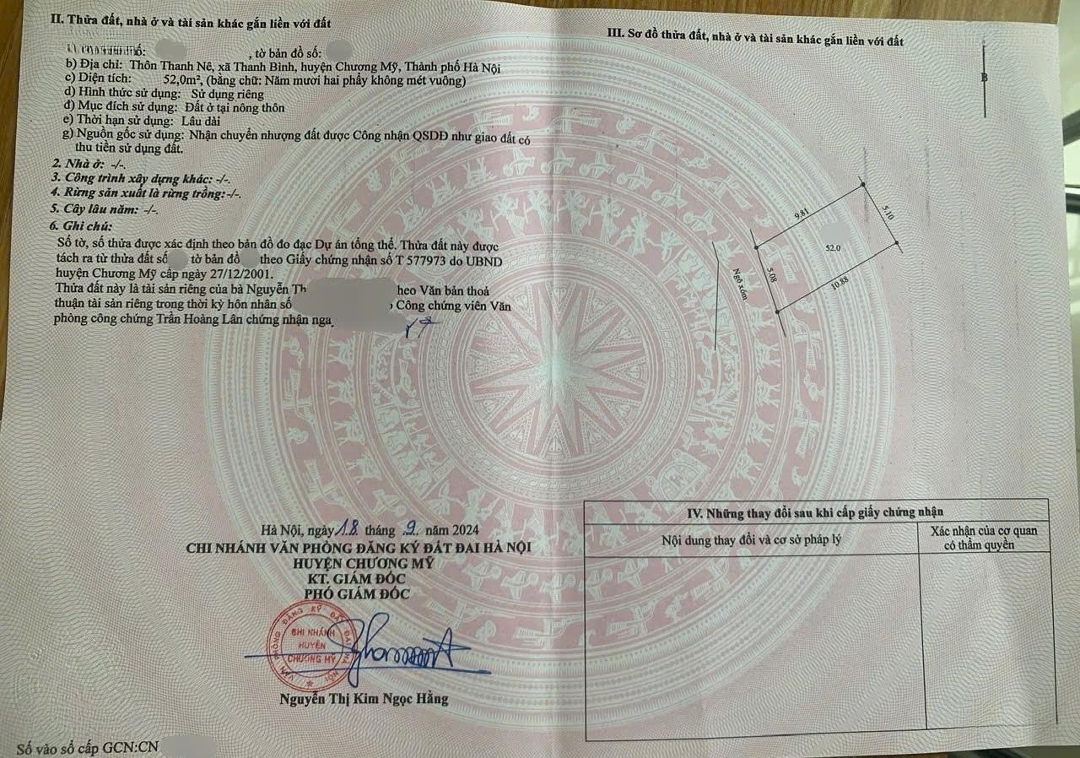 II. Thửa đất, nhà ở và tài sản khác gắn liền với đất
số: , tờ bản đồ số:
b) Địa chỉ: Thôn Thanh Nê, xã Thanh Bình, huyện Chương Mỹ, Thành phố Hà Nội
c) Diện tích: 52,0m², (bằng chữ: Năm mươi hai phẩy không mét vuông)
d) Hình thức sử dụng: Sử dụng riêng
đ) Mục đích sử dụng: Đất ở tại nông thôn
e) Thời hạn sử dụng: Lâu dài
g) Nguồn gốc sử dụng: Nhận chuyển nhượng đất được Công nhận QSDĐ như giao đất có
thu tiền sử dụng đất.
2. Nhà ở: -/-.
3. Công trình xây dựng khác: -/-.
4. Rừng sản xuất là rừng trồng:-/-.
5. Cây lâu năm: -/-.
6. Ghi chú:
Số tờ, số thửa được xác định theo bản đồ đo đạc Dự án tổng thể. Thửa đất này được
tách ra từ thửa đất số tờ bản đồ theo Giấy chứng nhận số T 577973 do UBND
huyện Chương Mỹ cấp ngày 27/12/2001.
Thửa đất này là tài sản riêng của bà Nguyễn Th heo Văn bản thoả
thuận tài sản riêng trong thời kỳ hôn nhân số Công chứng viên Văn
phòng công chứng Trần Hoàng Lân chứng nhận ngà
Hà Nội, ngày 18 tháng 9. năm 2024
CHI NHÁNH VĂN PHÒNG ĐĂNG KÝ ĐẤT ĐAI HÀ NỘI
HUYỆN CHƯƠNG MỸ
KT. GIÁM ĐỐC
PHÓ GIÁM ĐỐC
VĂN PHÒNG ĐĂNG KÝ ĐẤT ĐAI HÀ NỘI
CHI NHÁNH
HUYỆN
CHƯƠNG MỸ
Nguyễn Thị Kim Ngọc Hằng
Số vào sổ cấp GCN:CN
III. Sơ đồ thửa đất, nhà ở và tài sản khác gắn liền với đất
B
9.81
5.10
52.0
5.08
10.88
Ngõ xóm
IV. Những thay đổi sau khi cấp giấy chứng nhận
Nội dung thay đổi và cơ sở pháp lý
Xác nhận của cơ quan
có thẩm quyền